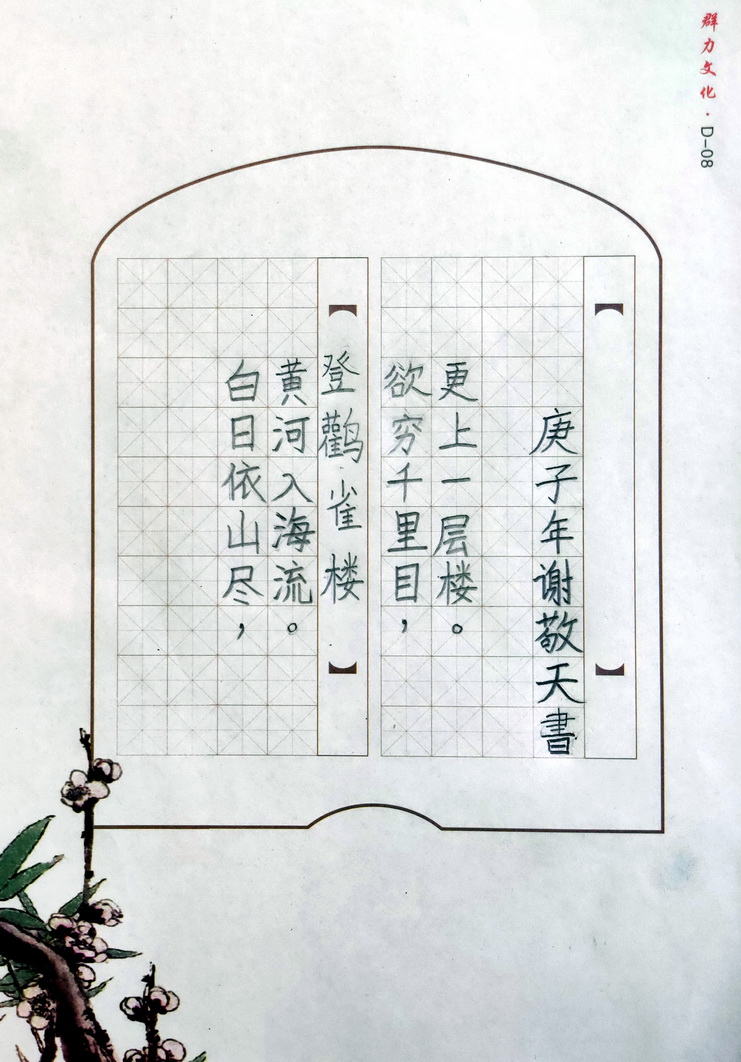 群力文化·D-08
登鹳雀楼
白日依山尽，
黄河入海流。
欲穷千里目，
更上一层楼。
庚子年谢敬天書